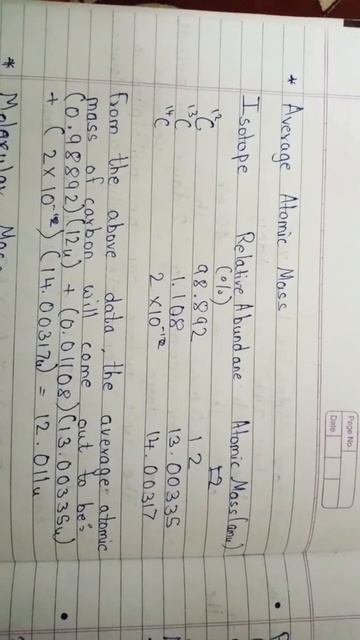 Page No.
Date
* Average Atomic Mass
Isotope Relative Abundane Atomic Mass (amu)
(%)
¹²C 98.892 12
¹³C 1.108 13.00335
¹⁴C 2 × 10⁻¹² 14.00317
from the above data, the average atomic
mass of carbon will come out to be:
(0.98892)(12u) + (0.01108)(13.00335u)
+ (2 × 10⁻¹²) (14.00317u) = 12.011u